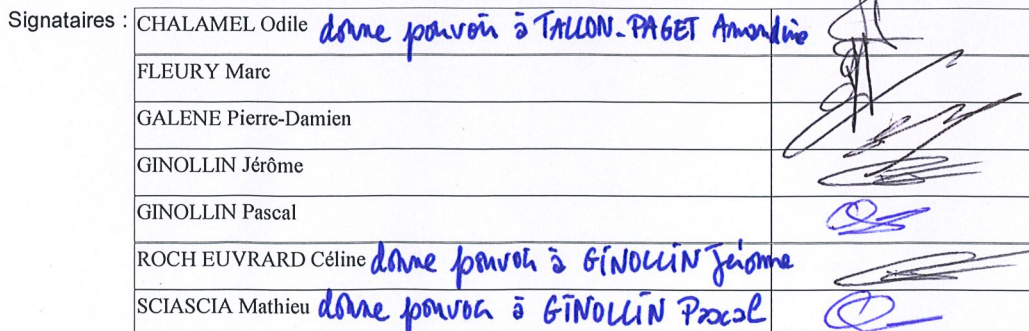 Signataires : CHALAMEL Odile donne pouvoir à TALLON-PAGET Amandine
FLEURY Marc
GALENE Pierre-Damien
GINOLLIN Jérôme
GINOLLIN Pascal
ROCH EUVRARD Céline donne pouvoir à GINOLLIN Jérôme
SCIASCIA Mathieu donne pouvoir à GINOLLIN Pascal